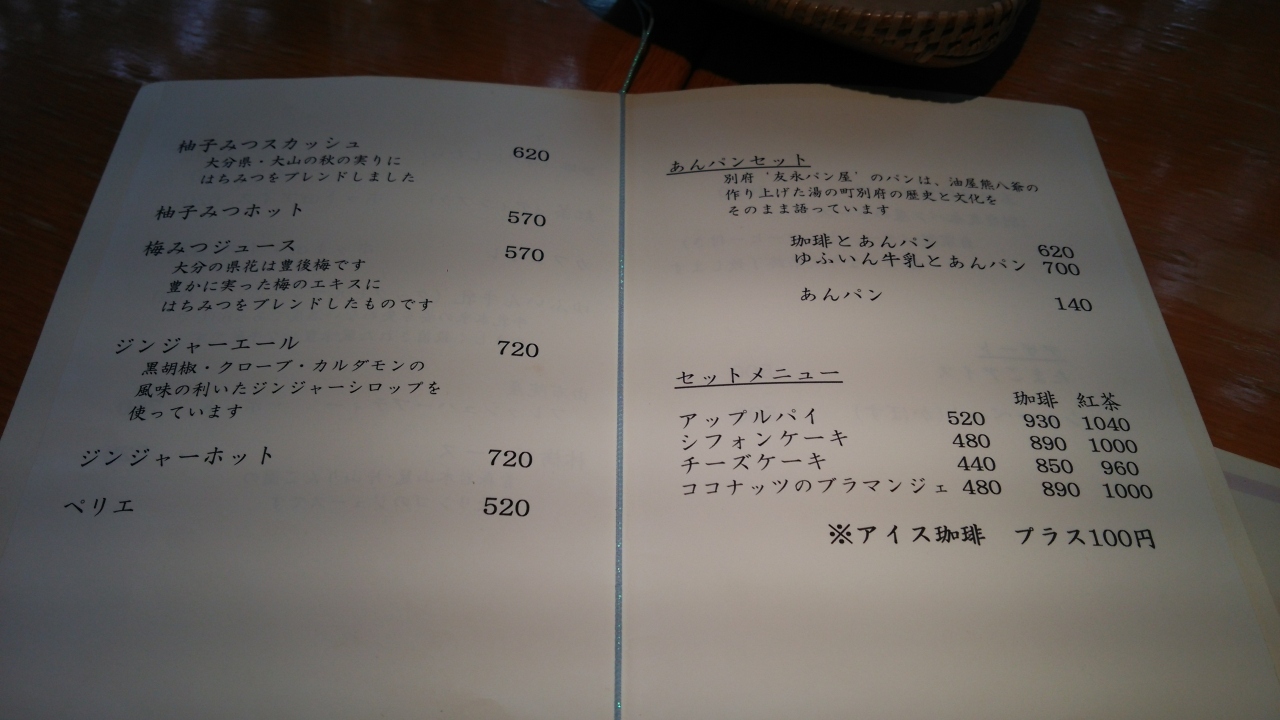 柚子みつスカッシュ 620
大分県・大山の秋の実りに
はちみつをブレンドしました
柚子みつホット 570
梅みつジュース 570
大分の県花は豊後梅です
豊かに実った梅のエキスに
はちみつをブレンドしたものです
ジンジャーエール 720
黒胡椒・クローブ・カルダモンの
風味の利いたジンジャーシロップを
使っています
ジンジャーホット 720
ペリエ 520
あんパンセット
別府‘友永パン屋’のパンは、油屋熊八爺の
作り上げた湯の町別府の歴史と文化を
そのまま語っています
珈琲とあんパン 620
ゆふいん牛乳とあんパン 700
あんパン 140
セットメニュー
珈琲 紅茶
アップルパイ 520 930 1040
シフォンケーキ 480 890 1000
チーズケーキ 440 850 960
ココナッツのブラマンジェ 480 890 1000
※アイス珈琲 プラス100円